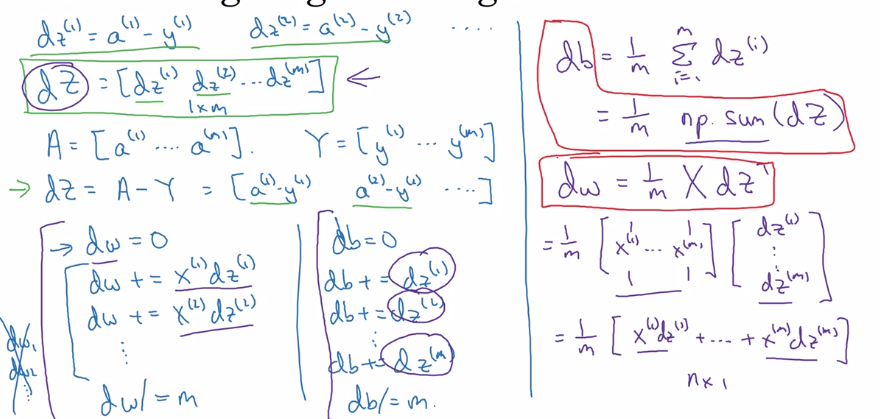 dz⁽¹⁾ = a⁽¹⁾ - y⁽¹⁾   dz⁽²⁾ = a⁽²⁾ - y⁽²⁾   ....
dZ = [dz⁽¹⁾ dz⁽²⁾ ... dz⁽ᵐ⁾] ←
1×m
A = [a⁽¹⁾ .... a⁽ᵐ⁾].   Y = [y⁽¹⁾ ... y⁽ᵐ⁾]
→ dz = A - Y = [a⁽¹⁾-y⁽¹⁾   a⁽²⁾-y⁽²⁾   ....]
→ dw = 0
dw += x⁽¹⁾dz⁽¹⁾
dw += x⁽²⁾dz⁽²⁾
⋮
dw /= m
dw₁
dw₂
⋮
db = 0
db += dz⁽¹⁾
db += dz⁽²⁾
⋮
db += dz⁽ᵐ⁾
db /= m.
db = 1/m Σᵢ₌₁ᵐ dz⁽ⁱ⁾
= 1/m np.sum(dZ)
dw = 1/m X dzᵀ
= 1/m [x⁽¹⁾ ... x⁽ᵐ⁾] [dz⁽¹⁾ ⋮ dz⁽ᵐ⁾]
= 1/m [x⁽¹⁾dz⁽¹⁾ + ... + x⁽ᵐ⁾dz⁽ᵐ⁾]
n×1